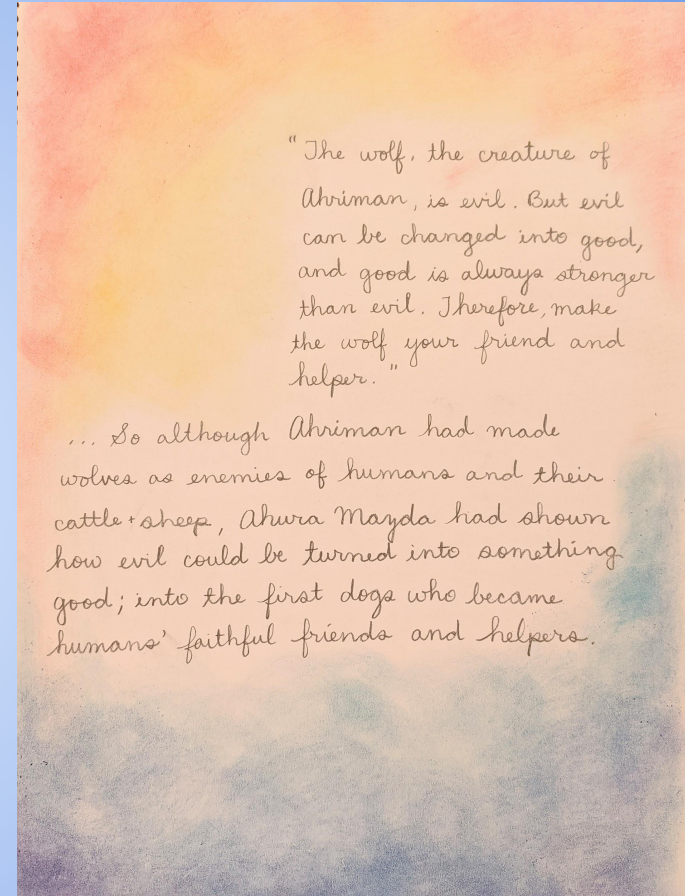 "The wolf, the creature of
Ahriman, is evil. But evil
can be changed into good,
and good is always stronger
than evil. Therefore, make
the wolf your friend and
helper."
... So although Ahriman had made
wolves as enemies of humans and their
cattle + sheep, Ahura Mazda had shown
how evil could be turned into something
good; into the first dogs who became
humans' faithful friends and helpers.